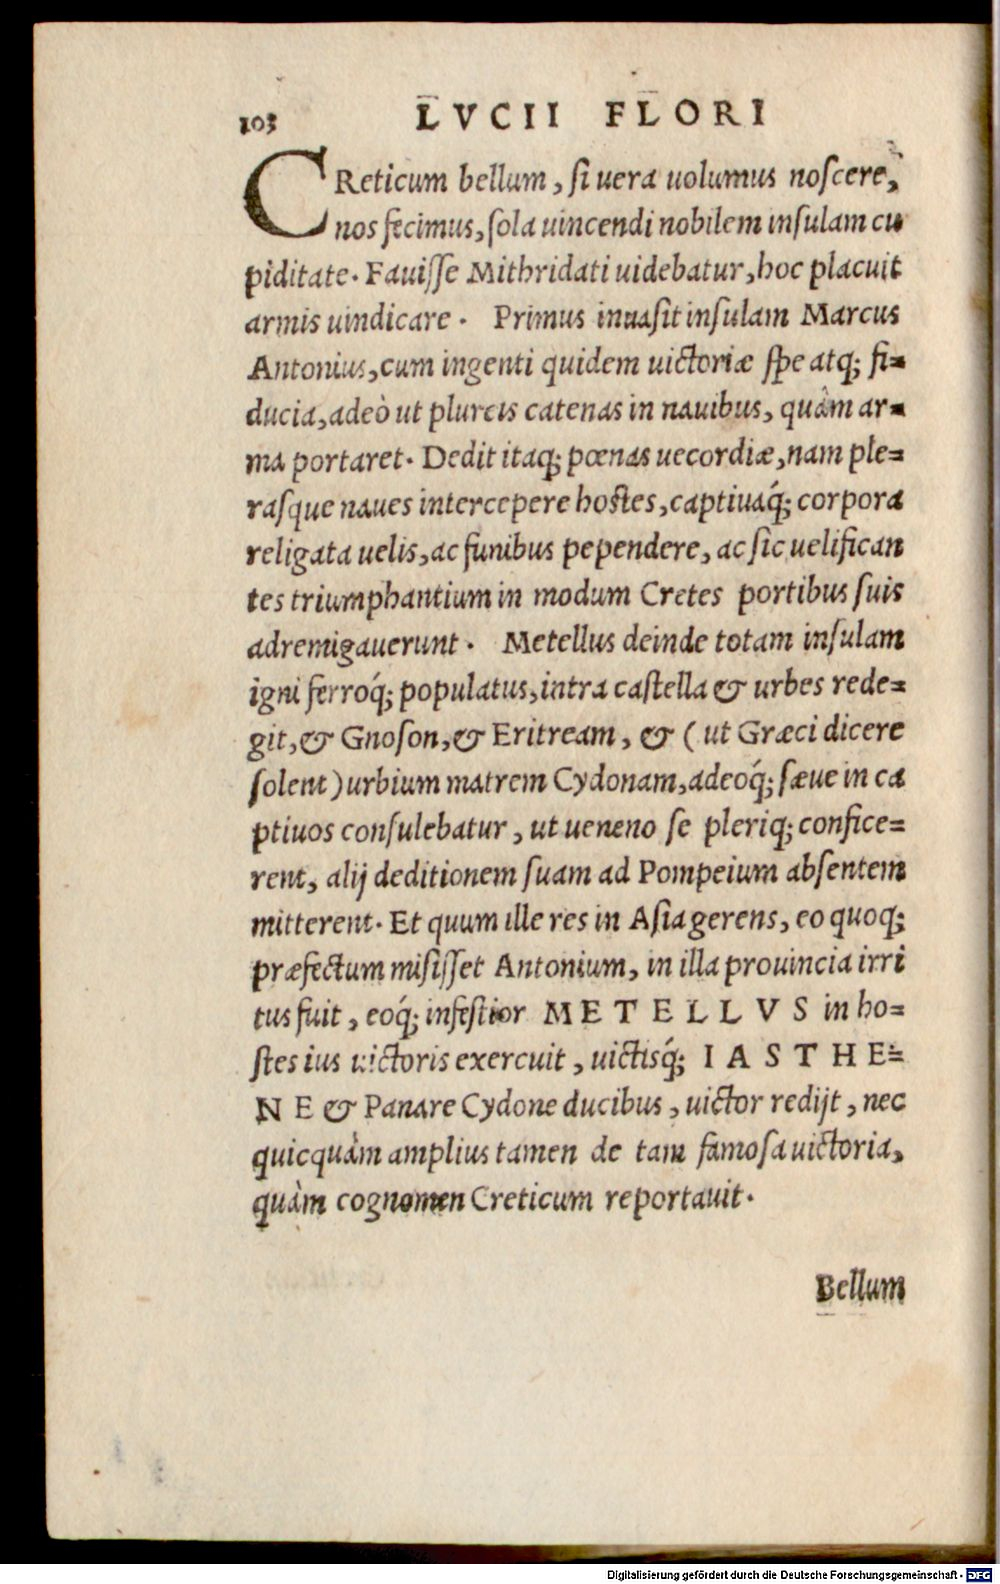 103 LVCII FLORI
CReticum bellum, si uera uolumus noscere,
nos fecimus, sola uincendi nobilem insulam cu
piditate. Fauisse Mithridati uidebatur, hoc placuit
armis uindicare. Primus inuasit insulam Marcus
Antonius, cum ingenti quidem uictoriæ spe atq; fi=
ducia, adeò ut plureis catenas in nauibus, quàm ar=
ma portaret. Dedit itaq; pœnas uecordiæ, nam ple=
rasque naues intercepere hostes, captiuaq́; corpora
religata uelis, ac funibus pependere, ac sic uelifican
tes triumphantium in modum Cretes portibus suis
adremigauerunt. Metellus deinde totam insulam
igni ferroq́; populatus, intra castella & urbes rede=
git, & Gnoson, & Eritream, & ( ut Græci dicere
solent ) urbium matrem Cydonam, adeoq́; sæue in ca
ptiuos consulebatur, ut ueneno se pleriq; confice=
rent, alij deditionem suam ad Pompeium absentem
mitterent. Et quum ille res in Asia gerens, eo quoq;
præfectum misisset Antonium, in illa prouincia irri
tus fuit, eoq́; infestior METELLVS in ho=
stes ius uictoris exercuit, uictisq́; IASTHE=
NE & Panare Cydone ducibus, uictor redijt, nec
quicquàm amplius tamen de tam famosa uictoria,
quàm cognomen Creticum reportauit.
Bellum
Digitalisierung gefördert durch die Deutsche Forschungsgemeinschaft - DFG